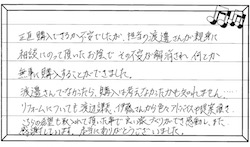 正直購入できるか不安でしたが、担当の渡邉さんが親身に
相談にのって頂いたお陰で その不安が解消され 何とか
無事に購入することができました。
渡邉さんでなかったら、購入は考えなかったかも知れません…
リフォームについても渡辺課長、伊藤さんから色々アドバイスや提案頂き
こちらの希望も取り入れて頂いた事で 良い家づくりができ感動し、また
感謝しています。本当にありがとうございました。